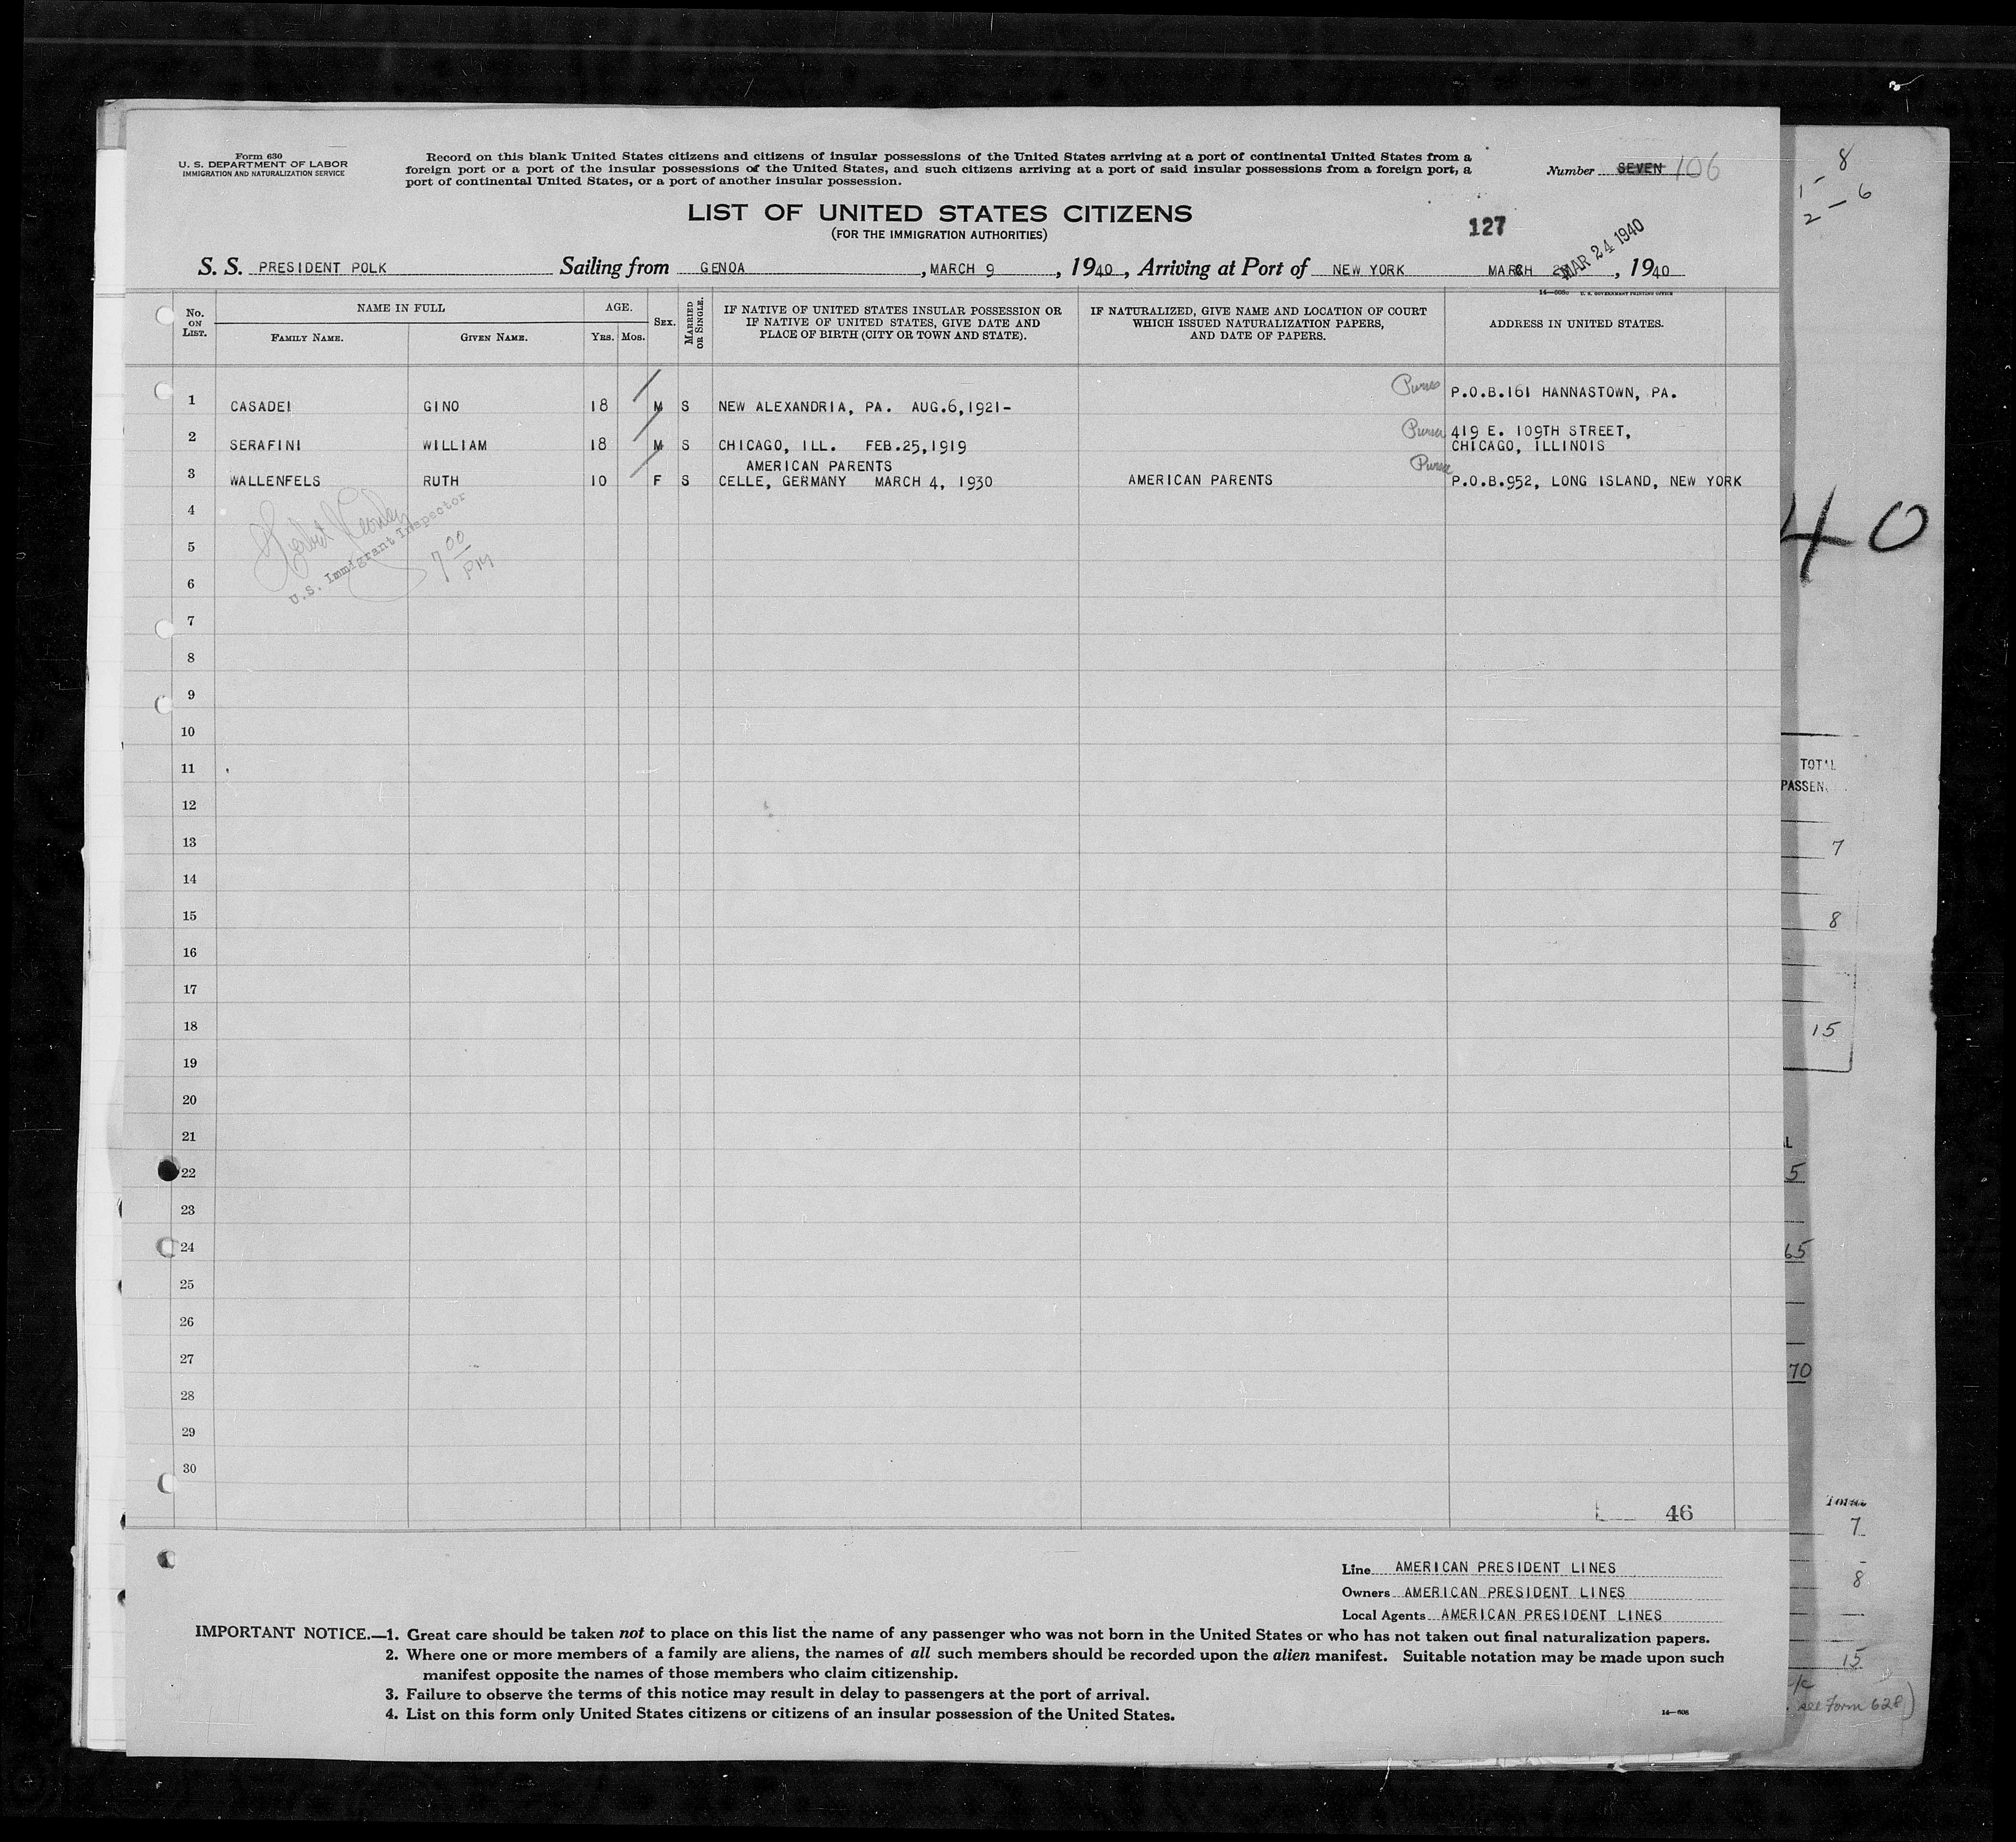 Form 630
U. S. DEPARTMENT OF LABOR
IMMIGRATION AND NATURALIZATION SERVICE
Record on this blank United States citizens and citizens of insular possessions of the United States arriving at a port of continental United States from a
foreign port or a port of the insular possessions of the United States, and such citizens arriving at a port of said insular possessions from a foreign port, a
port of continental United States, or a port of another insular possession.
Number SEVEN 106
LIST OF UNITED STATES CITIZENS
(FOR THE IMMIGRATION AUTHORITIES)
127
MAR 24 1940
S. S. PRESIDENT POLK Sailing from GENOA, MARCH 9, 1940, Arriving at Port of NEW YORK MARCH, 1940
14—608 U. S. GOVERNMENT PRINTING OFFICE
No. ON LIST.
NAME IN FULL
FAMILY NAME. GIVEN NAME.
AGE.
YRS. MOS.
SEX.
MARRIED OR SINGLE.
IF NATIVE OF UNITED STATES INSULAR POSSESSION OR
IF NATIVE OF UNITED STATES, GIVE DATE AND
PLACE OF BIRTH (CITY OR TOWN AND STATE).
IF NATURALIZED, GIVE NAME AND LOCATION OF COURT
WHICH ISSUED NATURALIZATION PAPERS,
AND DATE OF PAPERS.
ADDRESS IN UNITED STATES.
1 CASADEI GINO 18 M S NEW ALEXANDRIA, PA. AUG.6,1921- P.O.B.161 HANNASTOWN, PA.
2 SERAFINI WILLIAM 18 M S CHICAGO, ILL. FEB.25,1919 419 E. 109TH STREET,
CHICAGO, ILLINOIS
AMERICAN PARENTS
3 WALLENFELS RUTH 10 F S CELLE, GERMANY MARCH 4, 1930 AMERICAN PARENTS P.O.B.952, LONG ISLAND, NEW YORK
4
U.S. Immigrant Inspector
7 00 PM
5
6
7
8
9
10
11
12
13
14
15
16
17
18
19
20
21
22
23
24
25
26
27
28
29
30
46
Line AMERICAN PRESIDENT LINES
Owners AMERICAN PRESIDENT LINES
Local Agents AMERICAN PRESIDENT LINES
IMPORTANT NOTICE.—1. Great care should be taken not to place on this list the name of any passenger who was not born in the United States or who has not taken out final naturalization papers.
2. Where one or more members of a family are aliens, the names of all such members should be recorded upon the alien manifest. Suitable notation may be made upon such
manifest opposite the names of those members who claim citizenship.
3. Failure to observe the terms of this notice may result in delay to passengers at the port of arrival.
4. List on this form only United States citizens or citizens of an insular possession of the United States.
14—608
8
1 - 6
2 -
40
TOTAL
PASSEN
7
8
15
5
65
70
Total
7
8
15
see Form 628)